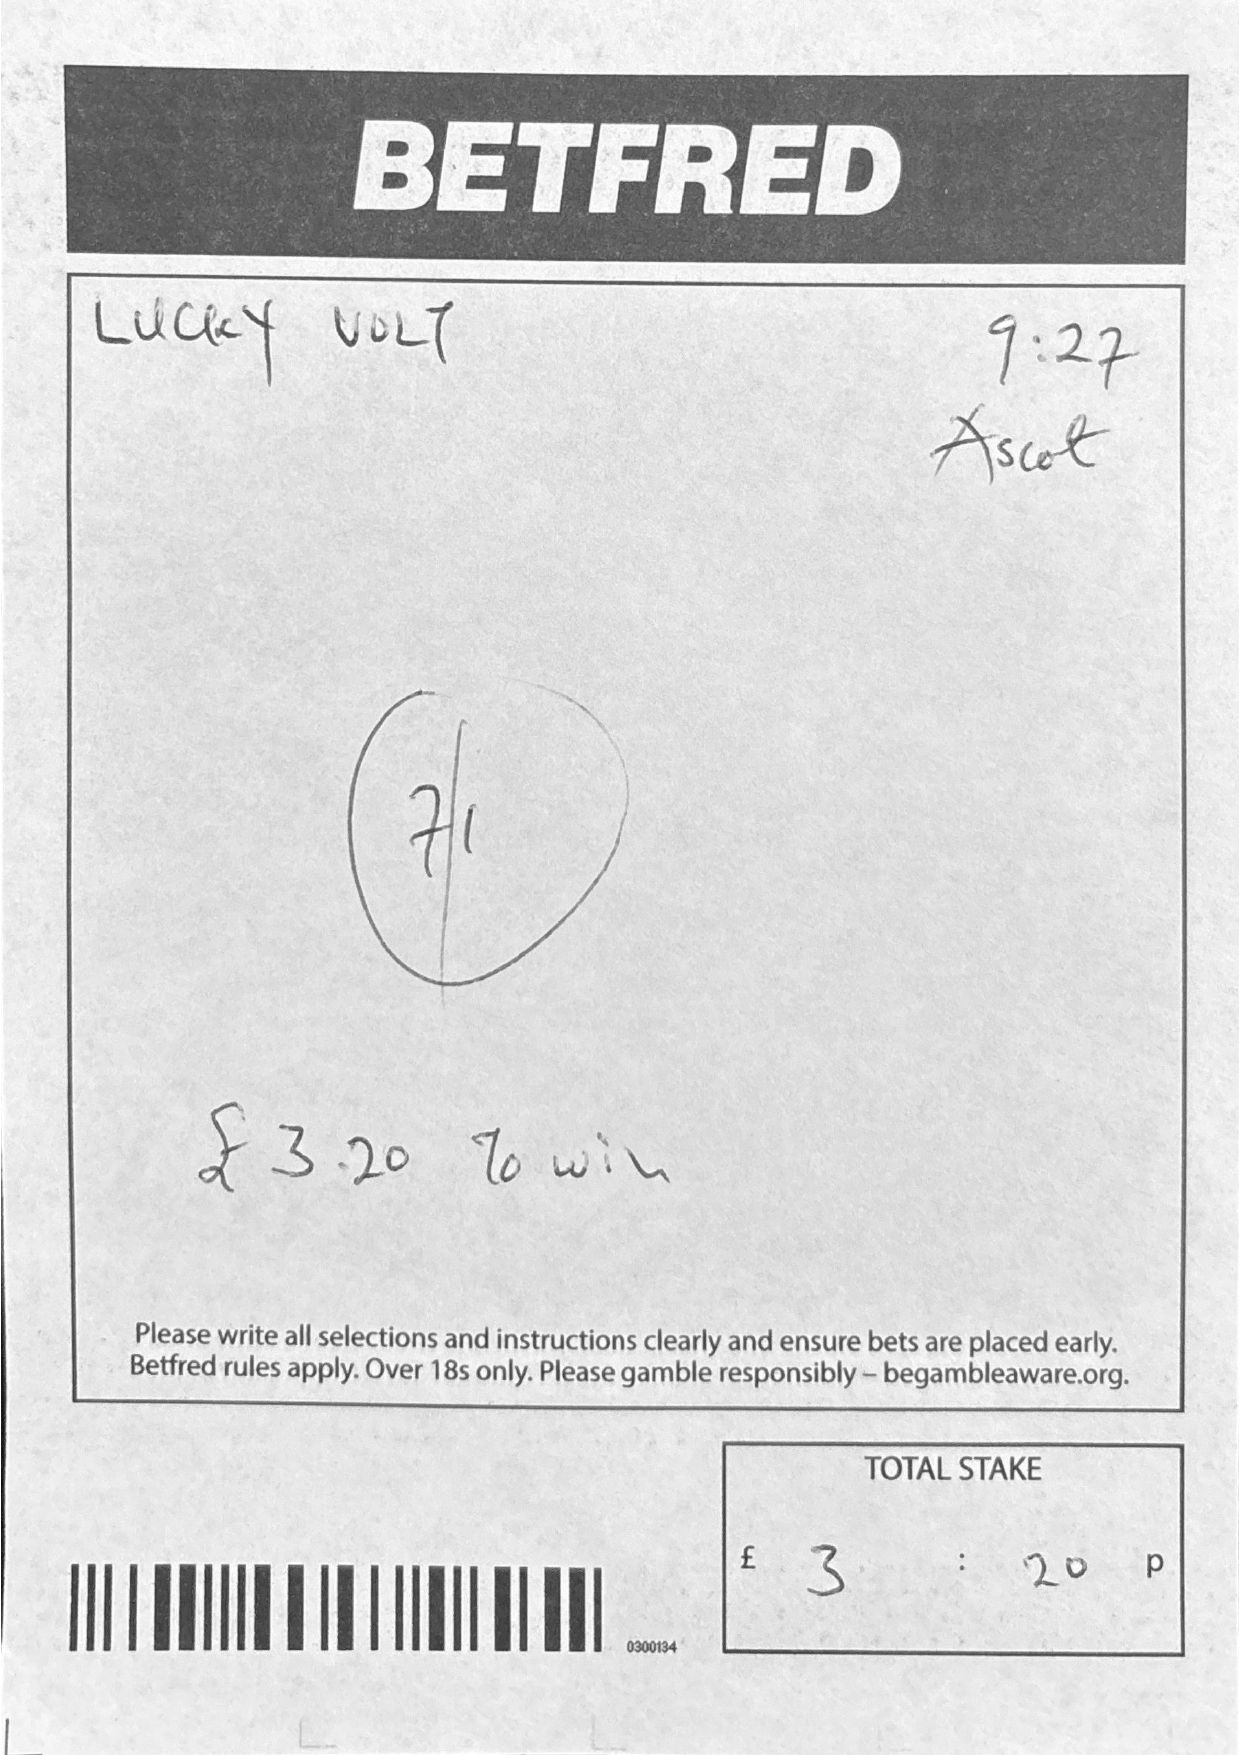 BETFRED
LUCKY VOLT
9:27
Ascot
7/1
£3.20 To win
Please write all selections and instructions clearly and ensure bets are placed early.
Betfred rules apply. Over 18s only. Please gamble responsibly – begambleaware.org.
TOTAL STAKE
£ 3 : 20 p
0300134